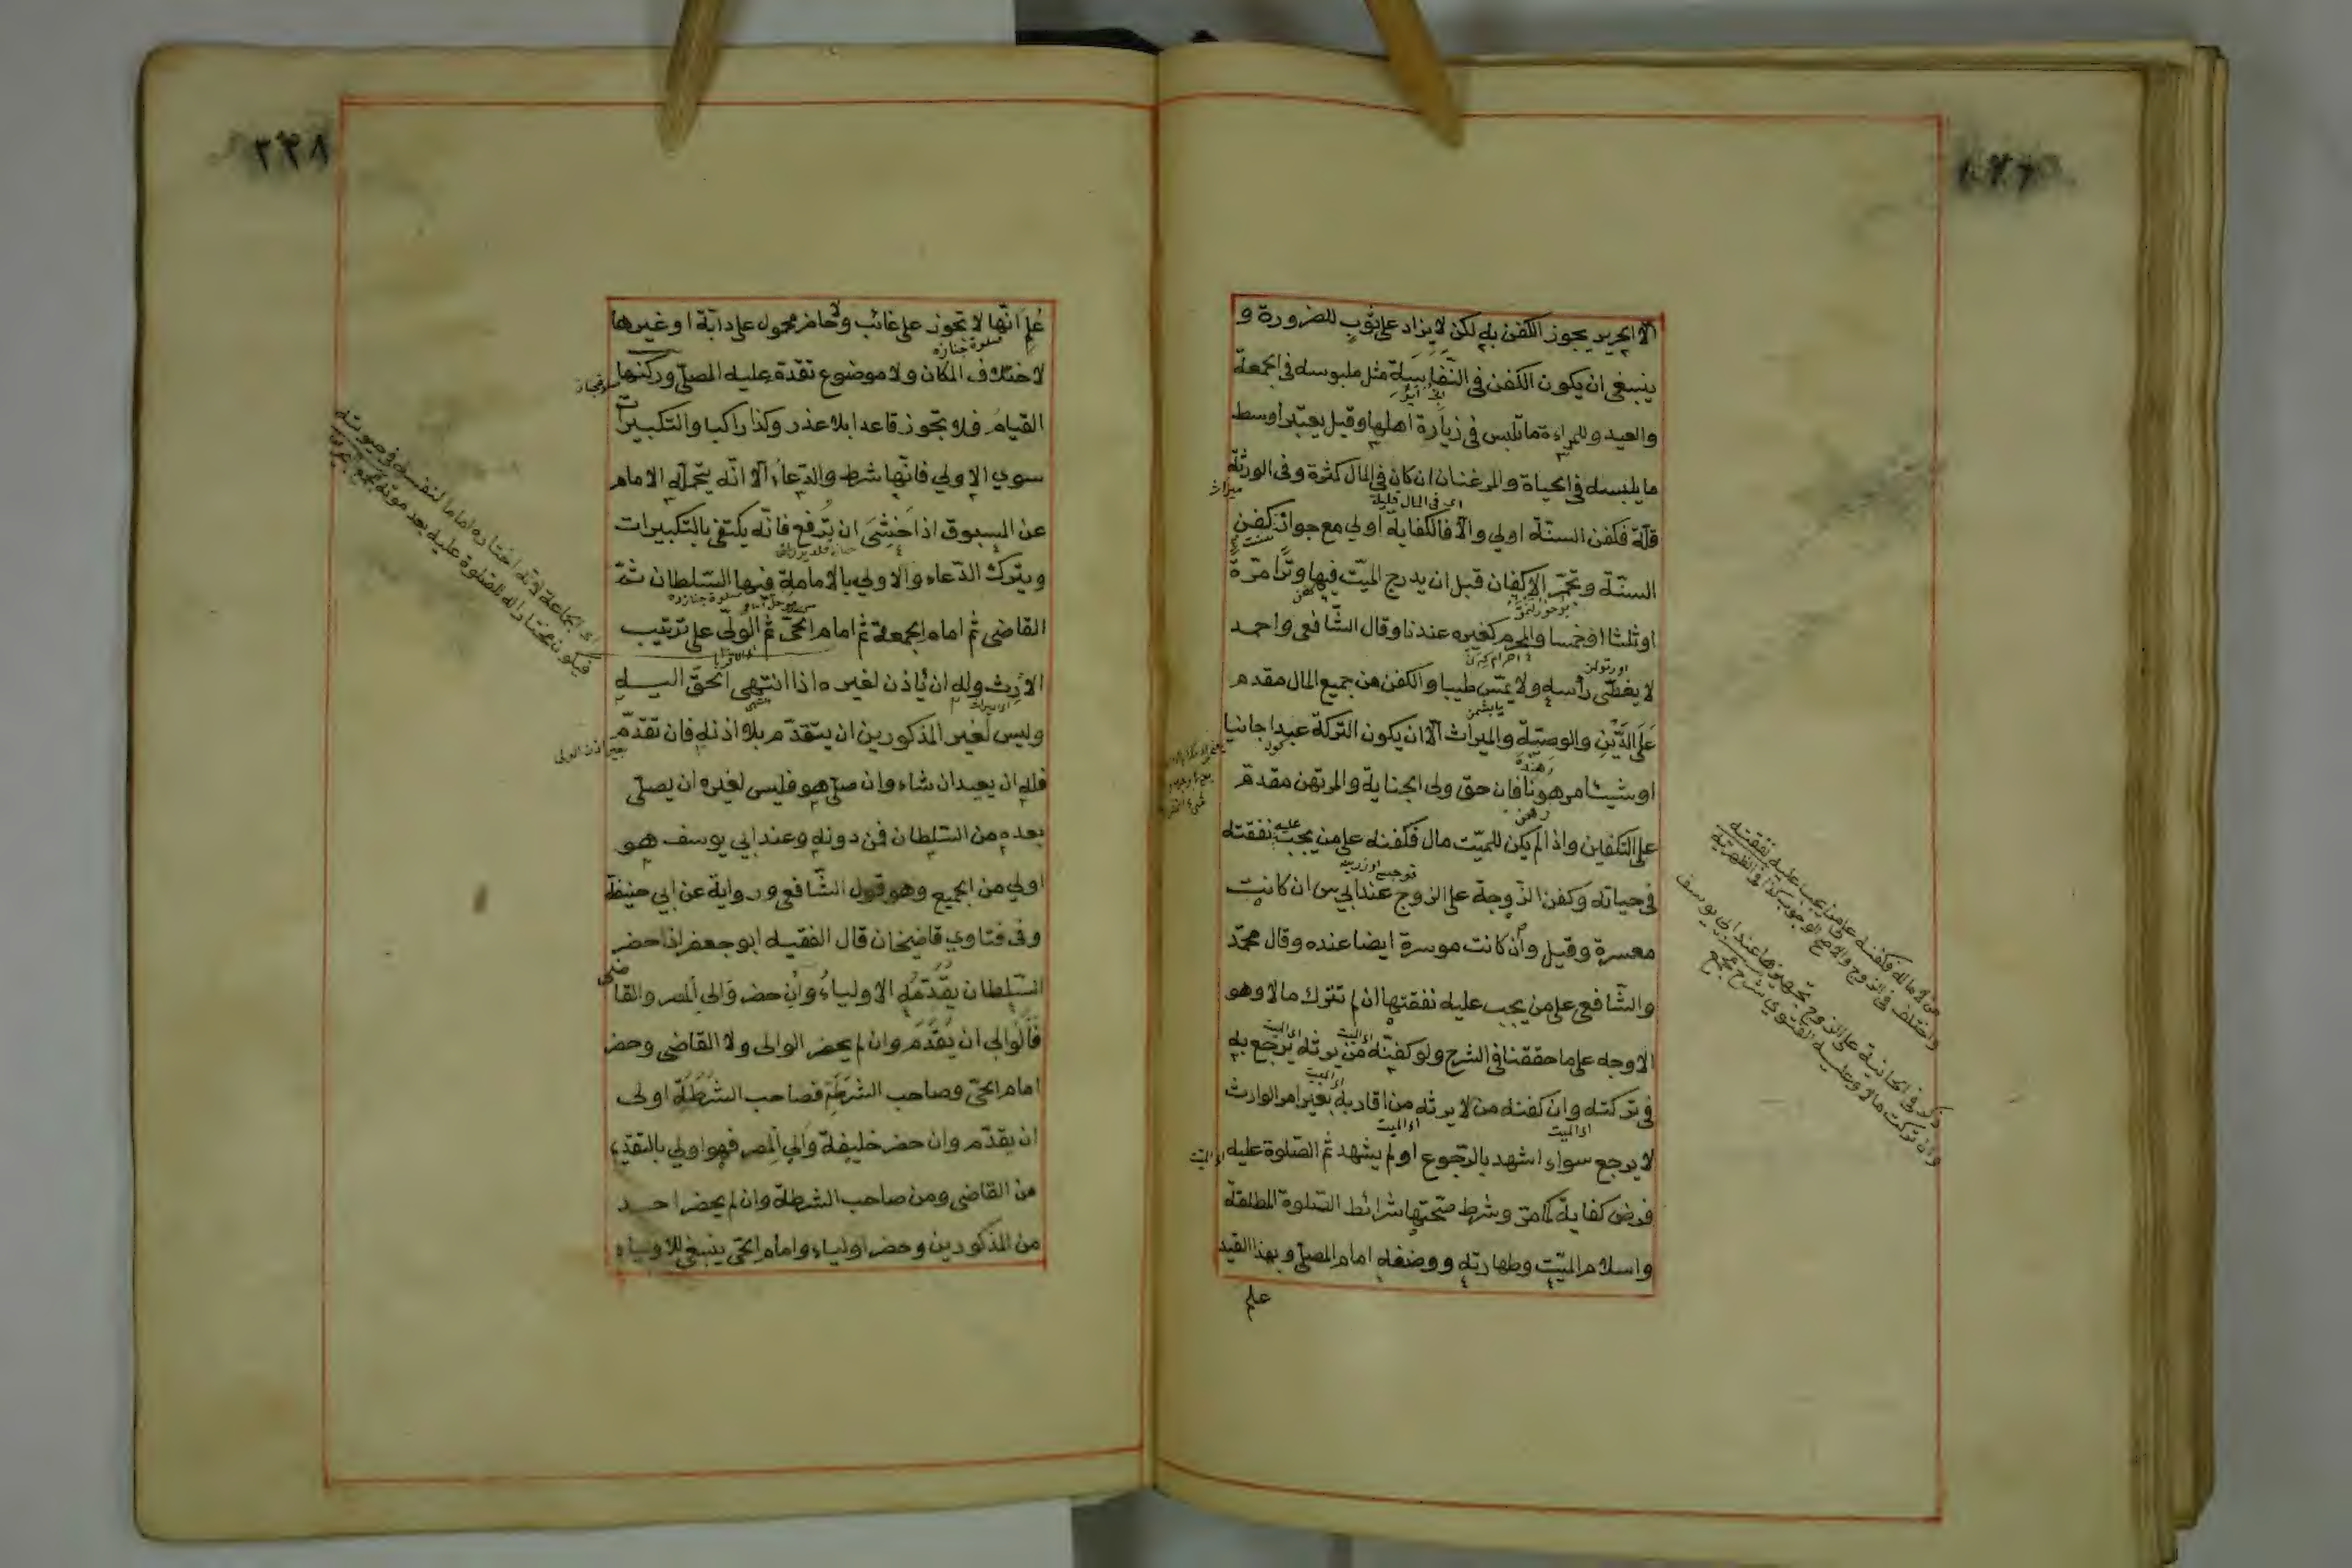 الا الحرير يجوز الكفن به لكن لا يزاد على ثوب للضرورة و
ينبغي ان يكون الكفن في النفاسة مثل ملبوسه في الجمعة
والعيد وللمراءة ما تلبس في زيارة اهلها وقيل يعتبر اوسط
ما يلبسه في الحياة والمرغنان ان كان في المال كثرة وفى الورثة
ميراث
اى في المال قليله
قلة فكفن السنّة اولي والّا فالكفاية اولي مع جواز كفن
السنّة وتجمّر الاكفان قبل ان يدرج الميّت فيها وترا مرّة
او ثلثا او خمسا والمحرم كغيره عندنا وقال الشّافعى واحمد
لا يغطّى رأسه ولا يمسّ طيبا والكفن من جميع المال مقدم
على الدّين والوصيّة والميراث الّا ان يكون التركة عبدا جانيا
او شيئا مرهونا فان حق ولى الجناية والمرتهن مقدم
على التكفين واذا لم يكن للميّت مال فكفنه على من يجب عليه نفقته
في حياته وكفن الزّوجة على الزوج عند ابي س ان كانت
معسرة وقيل وان كانت موسرة ايضا عنده وقال محمّد
والشّافعى على من يجب عليه نفقتها ان لم تترك مالا وهو
الاوجه على ما حققنا في الشرح ولو كفنه من يرثه يرجع به
في تركته وان كفنه من لا يرثه من اقاربه بغير امر الوارث
اى الميت
اى الميت
لا يرجع سواء اشهد بالرّجوع او لم يشهد ثم الصّلوة عليه
اى الميّت
فرض كفاية كما مرّ وشرط صحّتها شرائط الصّلوة المطلقة
واسلام الميّت وطهارته ووضعه امام المصلّى وبهذا القيد
علم
من لا مال له فكفنه على من يجب عليه نفقته
واختلف في الزوج والاصح الوجوب كذا في الظهيرية
ذكر في الخانية على الزوج تجهيزها عند ابى يوسف
وان تركت مالا وعليه الفتوي شرح مجمع
٢٢٨
عُلم انّها لا تجوز على غائب ولا حاضر محمول على دابة او غيرها
صلوة جنازه
لاختلاف المكان ولا موضوع تقدّم عليه المصلّي وركنها
القيام فلا تجوز قاعدا بلا عذر وكذا راكبا والتكبيرات
سوي الاولي فانّها شرط والدّعاء الّا انّه يتحمله الامام
عن المسبوق اذا خشى ان تُرفع فانّه يكتفى بالتكبيرات
ويترك الدّعاء والاولي بالامامة فيها السّلطان ثمّ
صلوة جنازده
القاضى ثم امام الجمعة ثم امام الحيّ ثم الولّى على ترتيب
الارث وله ان يأذن لغيره اذا انتهى الحقّ اليه
وليس لغير المذكورين ان يتقدّم بلا اذنه فان تقدّم
بغير اذن الولى
فله ان يعيد ان شاء وان صلّى هو فليس لغيره ان يصلّى
بعده من السّلطان فمن دونه وعند ابي يوسف هو
اولي من الجميع وهو قول الشّافعى ورواية عن ابي حنيفة
وفى فتاوي قاضيخان قال الفقيه ابو جعفر اذا حضر
السّلطان يقدّمه الاولياء وان حضر والى المصر والقاضى
فالوالي ان يقدّم وان لم يحضر الوالى ولا القاضى وحضر
امام الحيّ وصاحب الشرطة فصاحب الشرطة اولى
ان يقدّم وان حضر خليفة والي المصر فهو اولي بالتقديم
من القاضى ومن صاحب الشرطة وان لم يحضر احد
من المذكورين وحضر اولياء وامام الحيّ ينبغى للاولياء
اى الجماعة لانه اختاره اماما لنفسه في صوته
فيكون مختارا له للصلوة عليه بعد موته